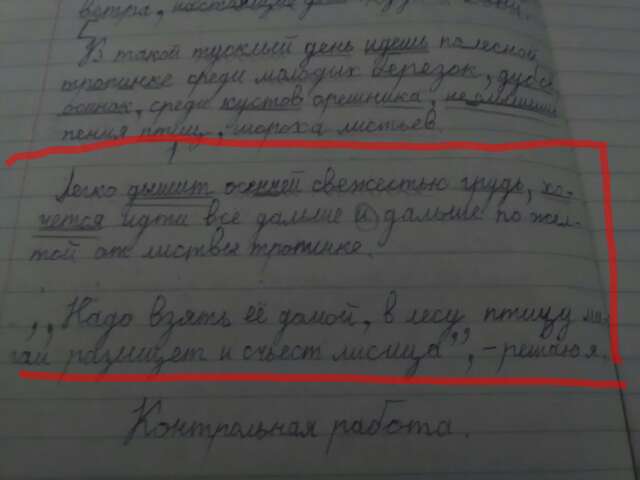 ветра,
В такой тусклый день идешь по лесной
тропинке среди молодых березок, дубов
среди кустов орешника, не слышишь
пения птиц, шороха листьев.
Легко дышит осенней свежестью грудь, хо-
чется идти все дальше и дальше по жел-
той от листвы тропинке.
,,Надо взять её домой, в лесу птицу
разыщет и съест лисица", - решаю я.
Контрольная работа.